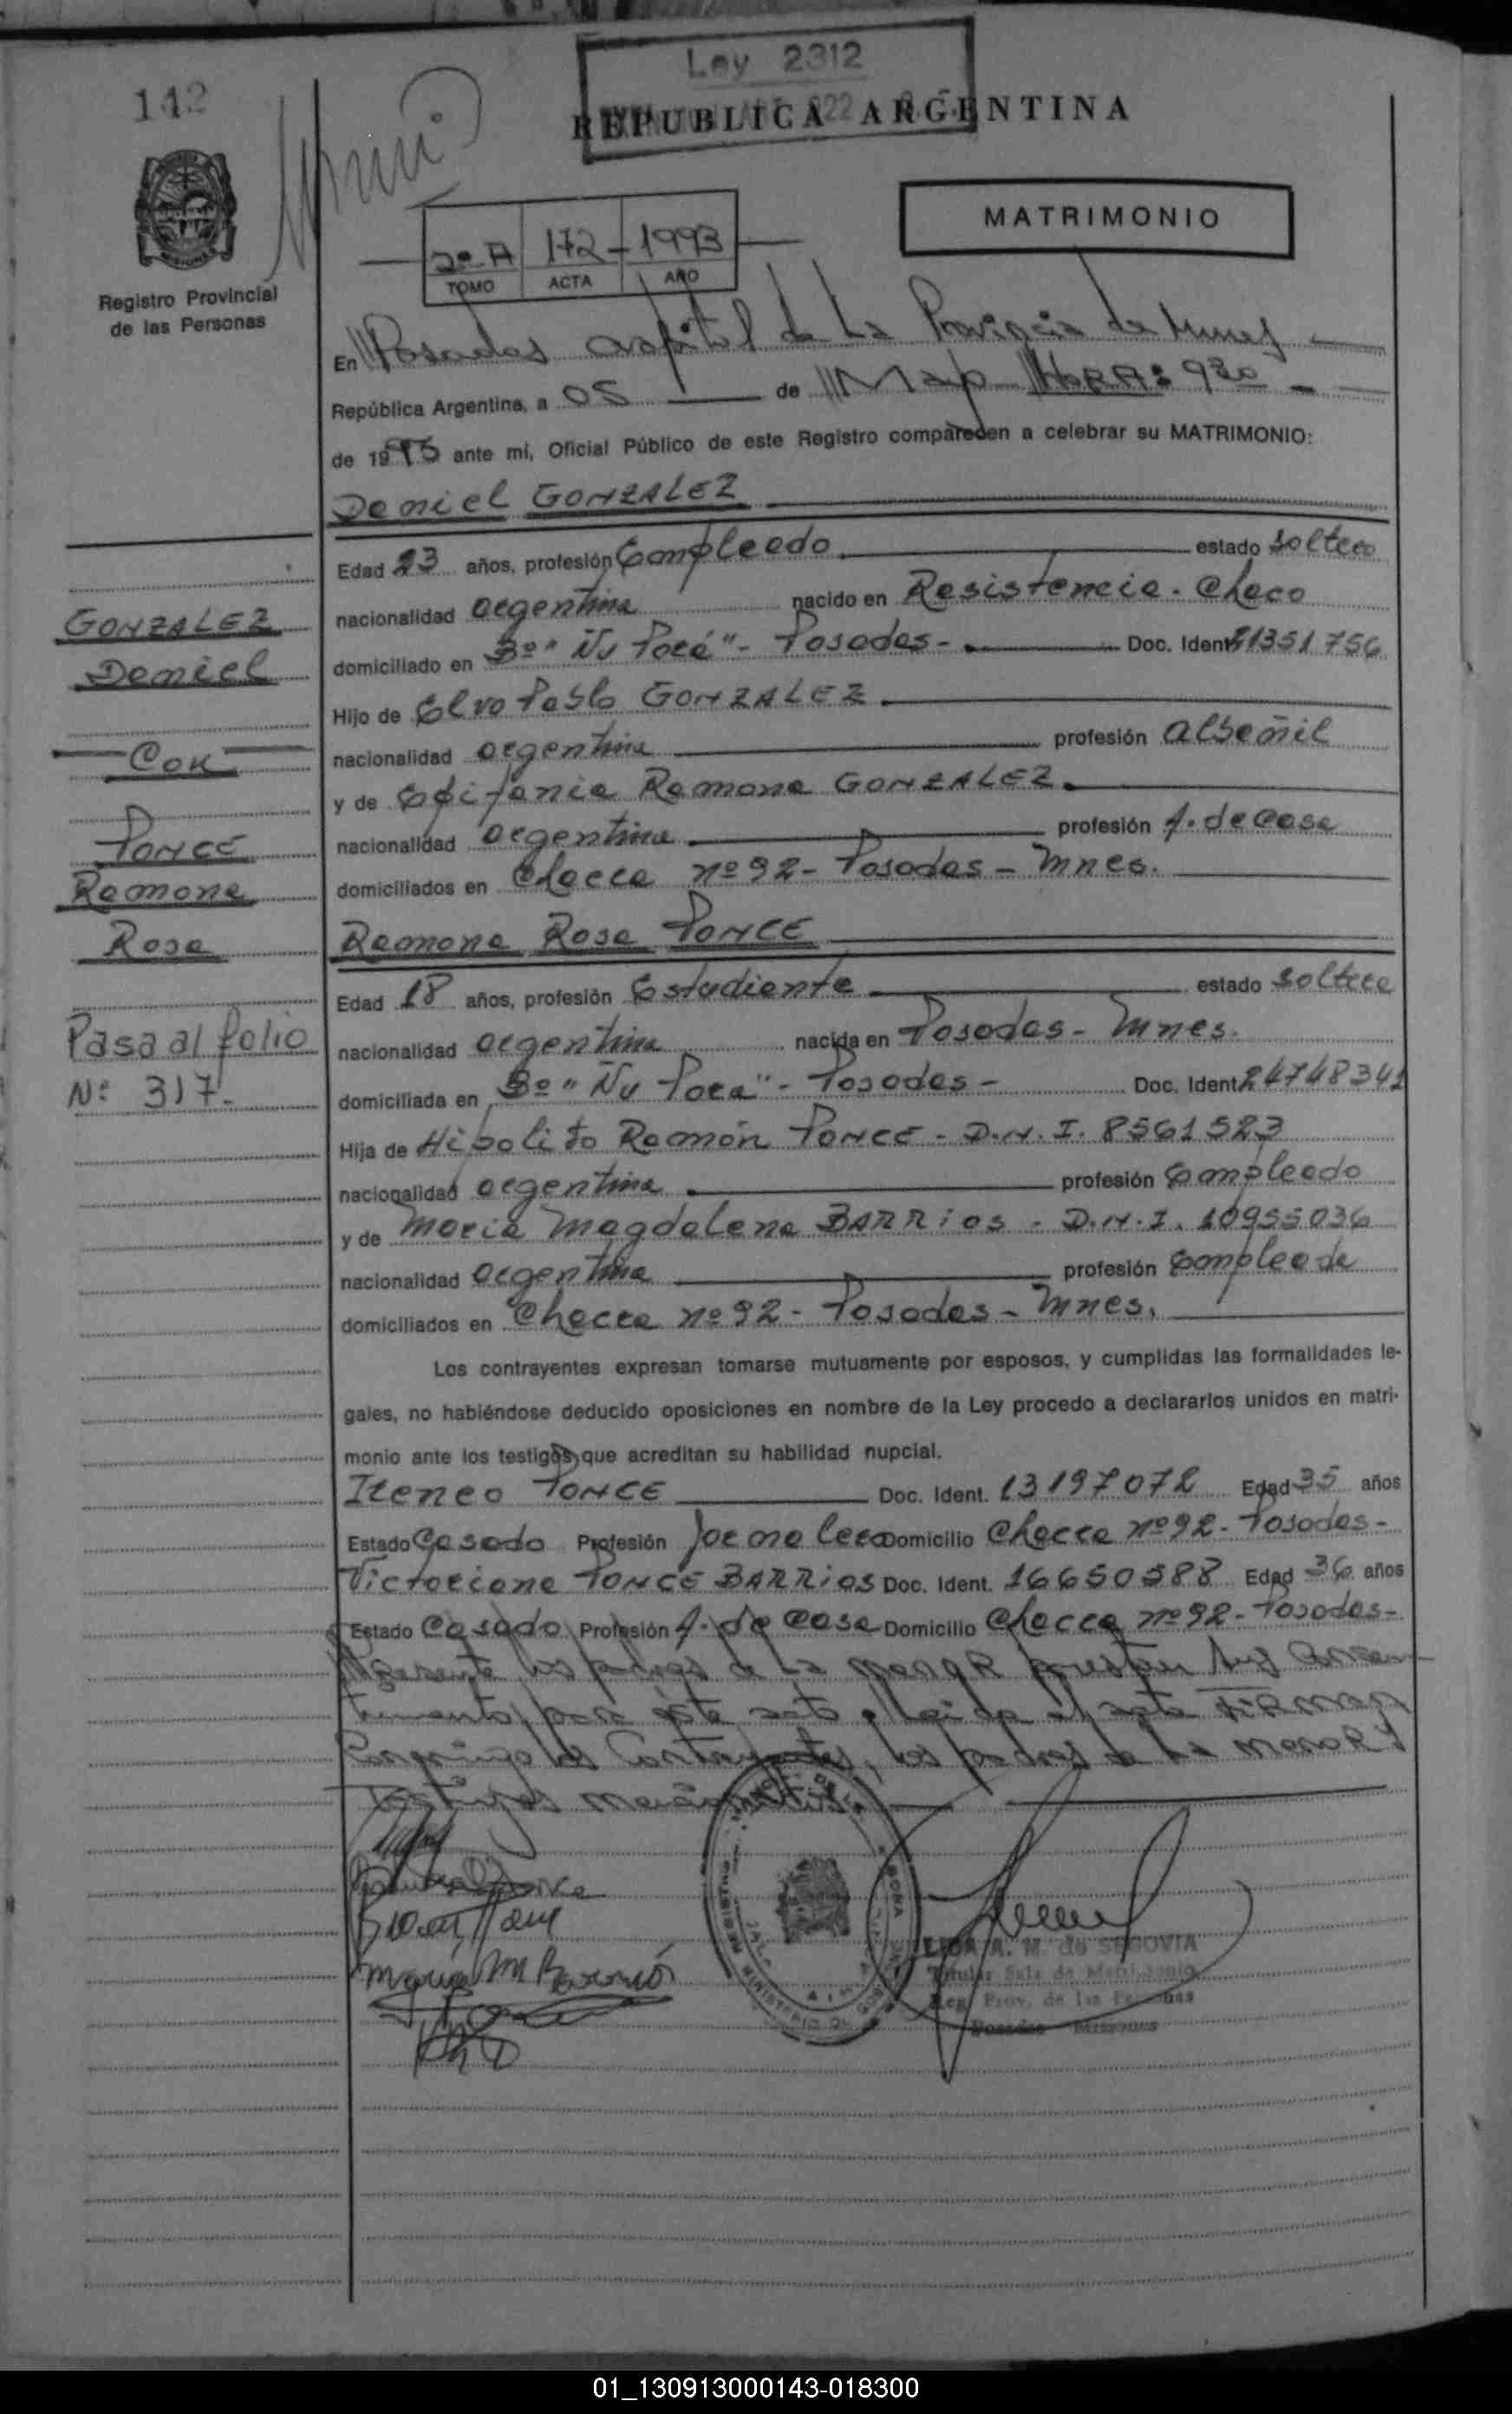 142
Ley 2312
REPUBLICA ARGENTINA
MATRIMONIO
2º A 172 - 1993
TOMO ACTA AÑO
Registro Provincial
de las Personas
En Posadas capital de La Provincia de Mnes
República Argentina, a 05 de Mayo HORA: 930
de 1993 ante mí, Oficial Público de este Registro comparecen a celebrar su MATRIMONIO:
Daniel GONZALEZ
Edad 23 años, profesión Empleado estado soltero
nacionalidad argentina nacido en Resistencia - Chaco
domiciliado en Bº "Ñu Porá" - Posadas - Doc. Ident 21351756
Hijo de Elvo Pablo GONZALEZ
nacionalidad argentina profesión albañil
y de Epifania Ramona GONZALEZ
nacionalidad argentina profesión A. de Casa
domiciliados en Chacra nº 92 - Posadas - Mnes.
Ramona Rosa PONCE
Edad 18 años, profesión Estudiante estado soltera
nacionalidad argentina nacida en Posadas - Mnes.
domiciliada en Bº "Ñu Porá" - Posadas - Doc. Ident 24748341
Hija de Hipolito Ramón PONCE - D.N.I. 8561523
nacionalidad argentina profesión Empleado
y de María Magdalena BARRIOS - D.N.I. 10955036
nacionalidad argentina profesión Empleada
domiciliados en Chacra nº 92 - Posadas - Mnes.
Los contrayentes expresan tomarse mutuamente por esposos, y cumplidas las formalidades le-
gales, no habiéndose deducido oposiciones en nombre de la Ley procedo a declararlos unidos en matri-
monio ante los testigos que acreditan su habilidad nupcial.
Ireneo PONCE Doc. Ident. 13197072 Edad 35 años
Estado Casado Profesión Jornalero Domicilio Chacra nº 92 - Posadas -
Victoriana PONCE BARRIOS Doc. Ident. 16650588 Edad 36 años
Estado Casado Profesión A. de Casa Domicilio Chacra nº 92 - Posadas -
presente los padres de La menor prestan sus Consen-
timento para éste acto y leida el acta FIRMAN
Conmigo los Contrayentes, los padres de La menor y
Testigos mencionados.
GONZALEZ
Daniel
Con
PONCE
Ramona
Rosa
Pasa al folio
Nº 317.
Maria M Barrios
LIDIA A. M. de SEGOVIA
Titular Sala de Matrimonio
Reg. Prov. de las Personas
Posadas Misiones
01_130913000143-018300